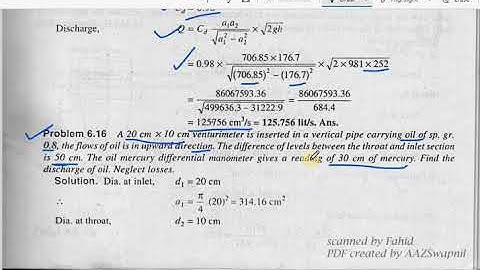 Discharge, Q = C_d a₁a₂ / √(a₁² – a₂²) × √2gh
= 0.98 × 706.85 × 176.7 / √((706.85)² – (176.7)²) × √(2 × 981 × 252)
= 86067593.36 / √(499636.3 – 31222.9) = 86067593.36 / 684.4
= 125756 cm³/s = 125.756 lit/s. Ans.
Problem 6.16 A 20 cm × 10 cm venturimeter is inserted in a vertical pipe carrying oil of sp. gr.
0.8, the flows of oil is in upward direction. The difference of levels between the throat and inlet section
is 50 cm. The oil mercury differential manometer gives a reading of 30 cm of mercury. Find the
discharge of oil. Neglect losses.
Solution. Dia. at inlet, d₁ = 20 cm
∴ a₁ = π/4 (20)² = 314.16 cm²
Dia. at throat, d₂ = 10 cm
scanned by Fahid
PDF created by AAZSwapnil